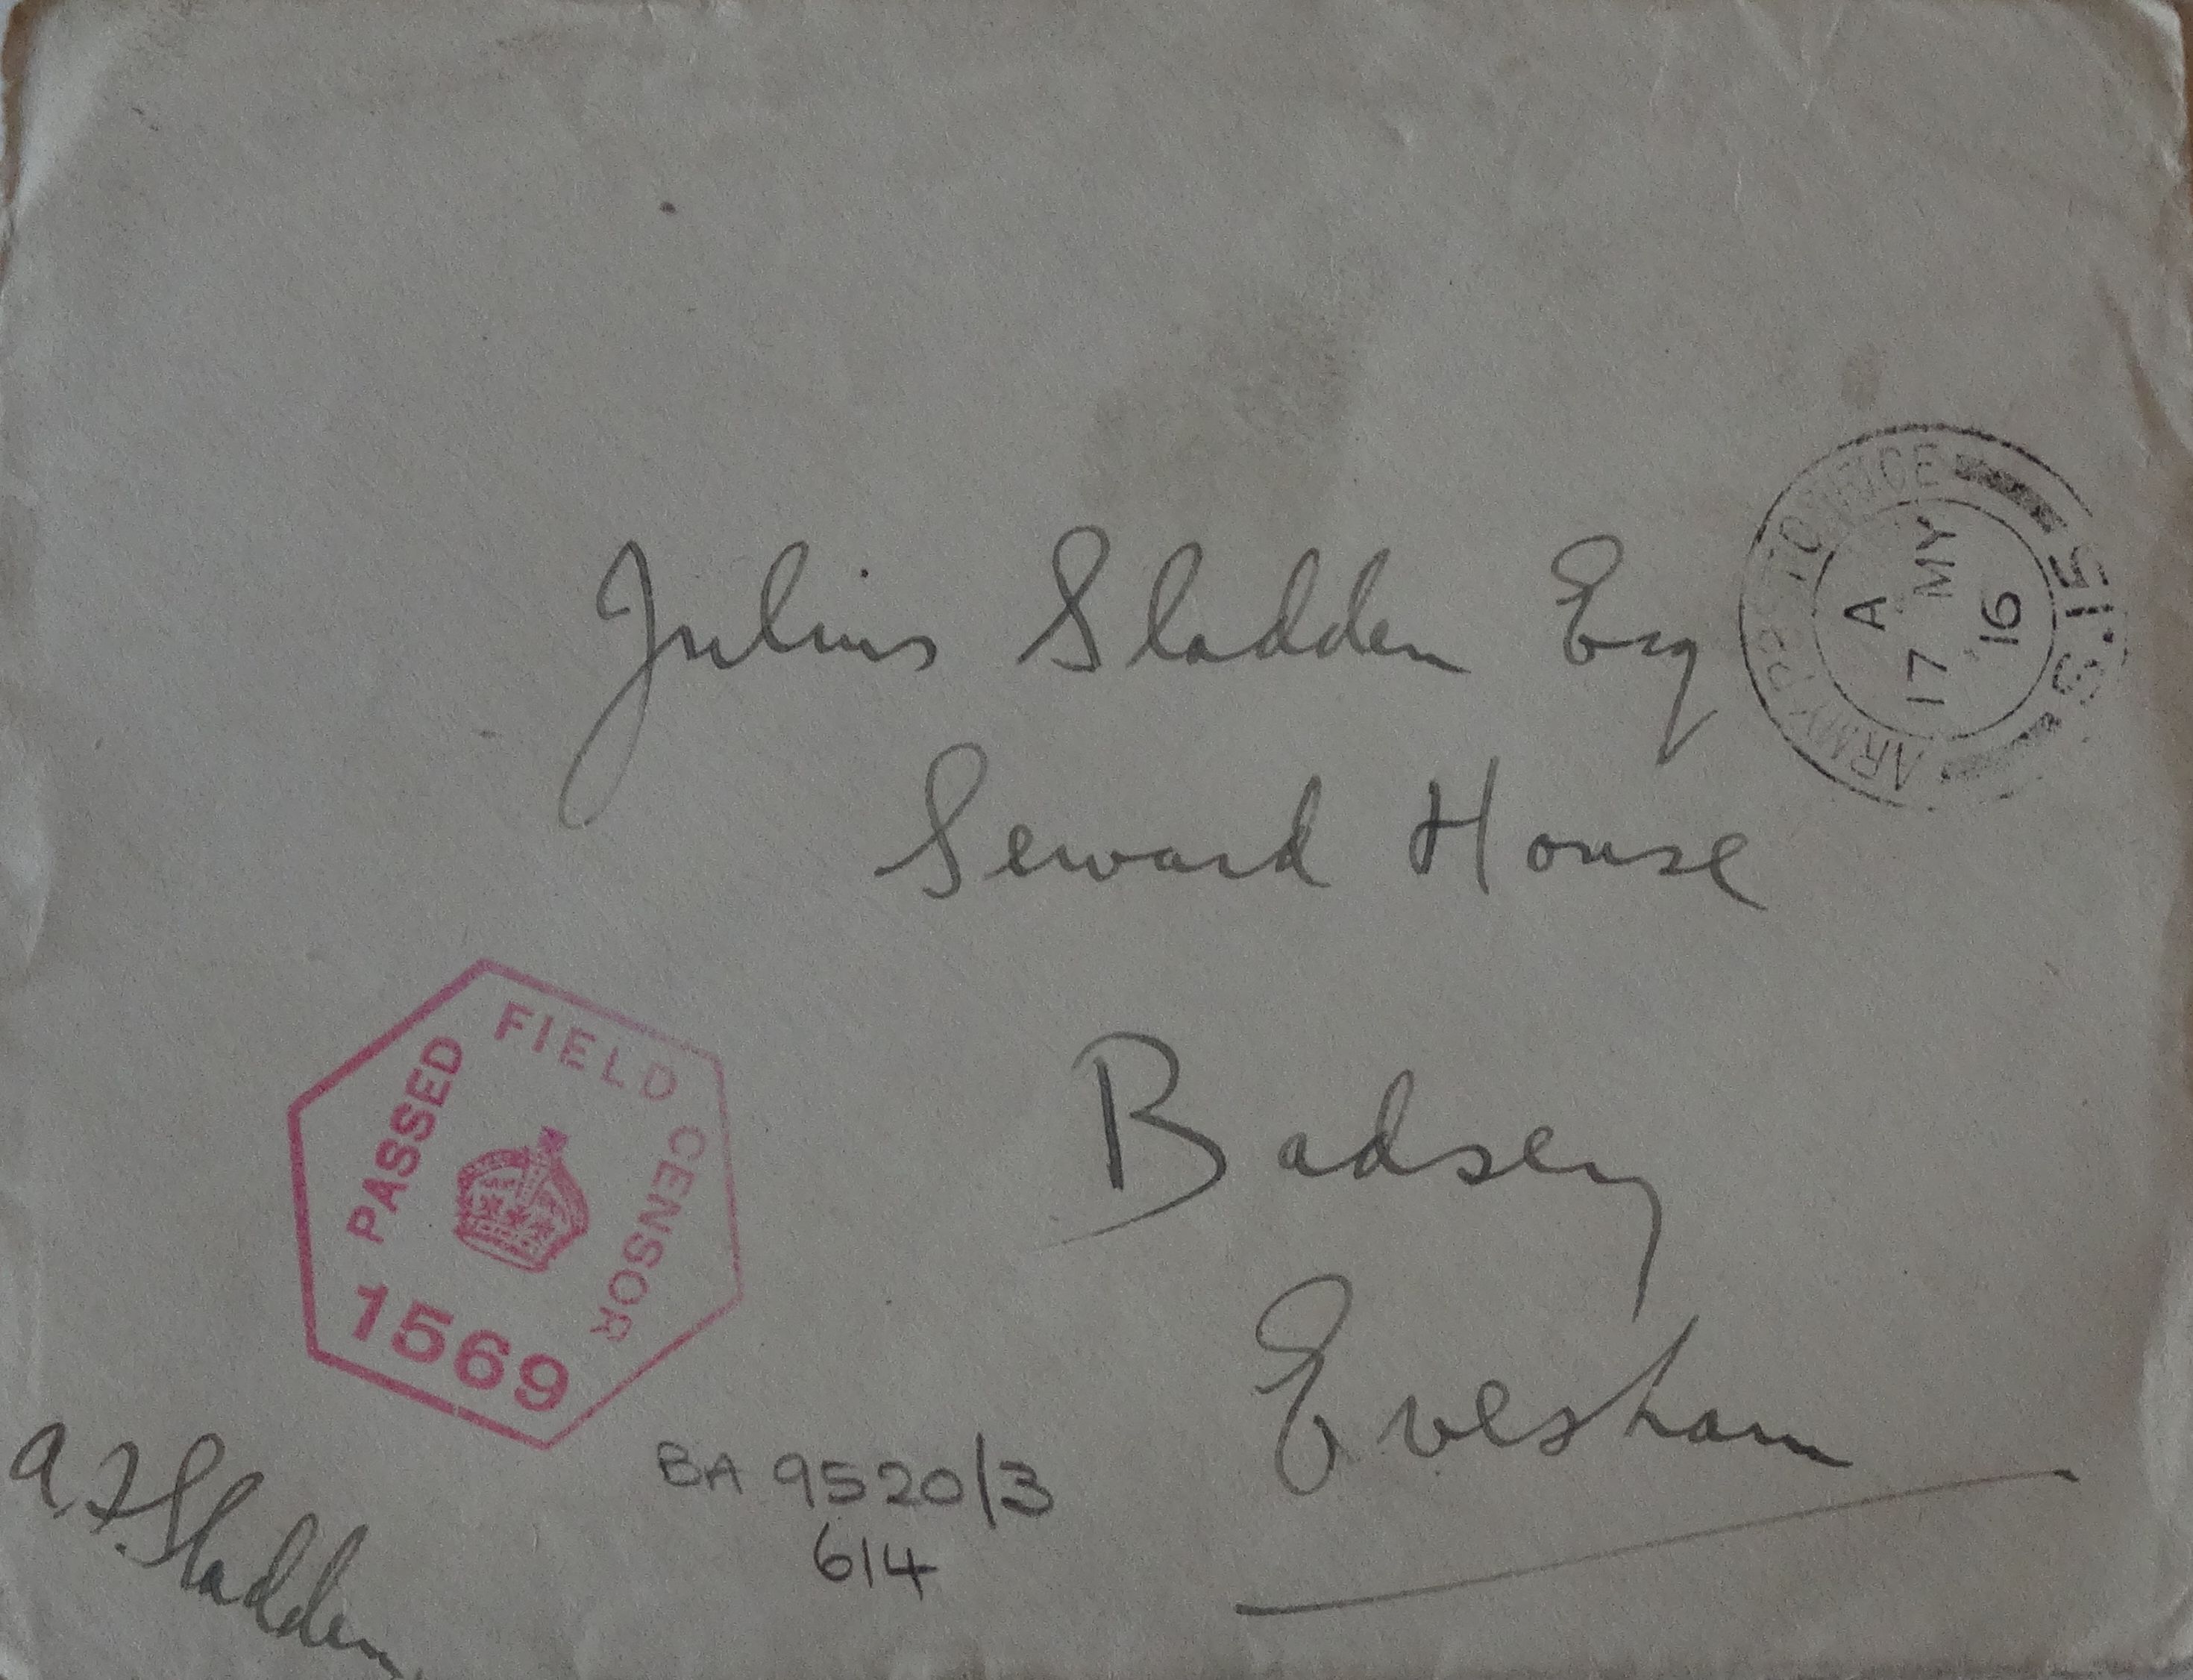 Julius Sladden Esq
Seward House
Badsey
Evesham
ARMY POST OFFICE
A
17 MY
16
S.15
PASSED FIELD CENSOR
1569
A. F. Sladden
BA 9520/3
614